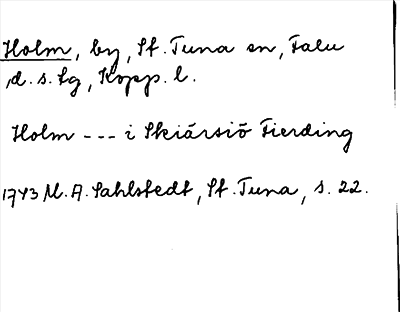 Holm, by, St. Tuna sn, Falu
d. s. lg, Kopp. l.
Holm --- i Skiärsiö Fierding
1743 M. A. Sahlstedt, St. Tuna, s. 22.